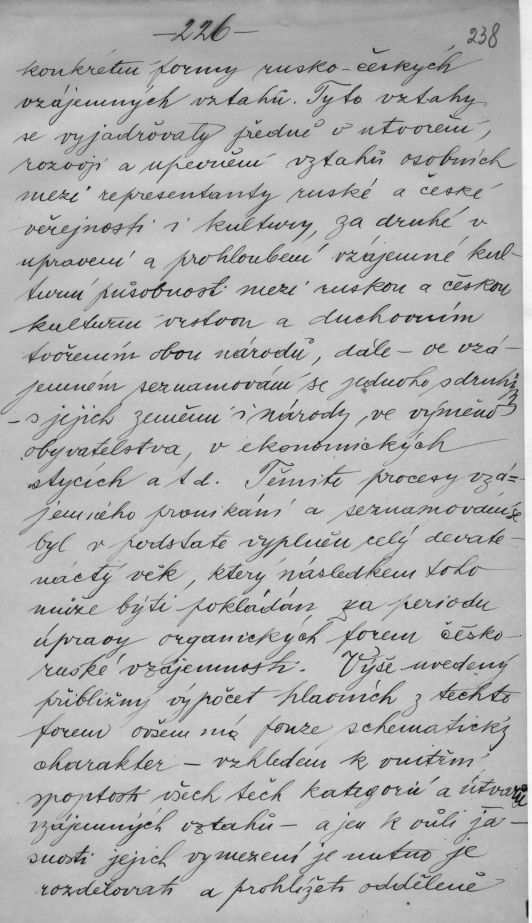 -226-
238
konkrétní formy rusko-českých
vzájemných vztahů. Tyto vztahy
se vyjadřovaly předně v utvoření,
rozvoji a upevnění vztahů osobních
mezi representanty ruské a české
veřejnosti i kultury, za druhé v
upravení a prohloubení vzájemné kul-
turní působnosti mezi ruskou a českou
kulturní vrstvou a duchovním
tvořením obou národů, dále - ve vzá-
jemném seznamování se jednoho s druhým
- s jejich zeměmi i národy, ve výměně
obyvatelstva, v ekonomických
stycích a t d. Těmito procesy vzá-
jemného pronikání a seznamování se
byl v podstatě vyplněn celý devate-
náctý věk, který následkem toho
může býti pokládán za periodu
úpravy organických forem česko-
ruské vzájemnosti. Výše uvedený
přibližný výpočet hlavních z těchto
forem ovšem má pouze schematický
charakter - vzhledem k vnitřní
spoptosti všech těch kategorií a útvarů
vzájemných vztahů - a jen k vůli ja-
snosti jejich vymezení je nutno je
rozdělovati a prohlížeti odděleně